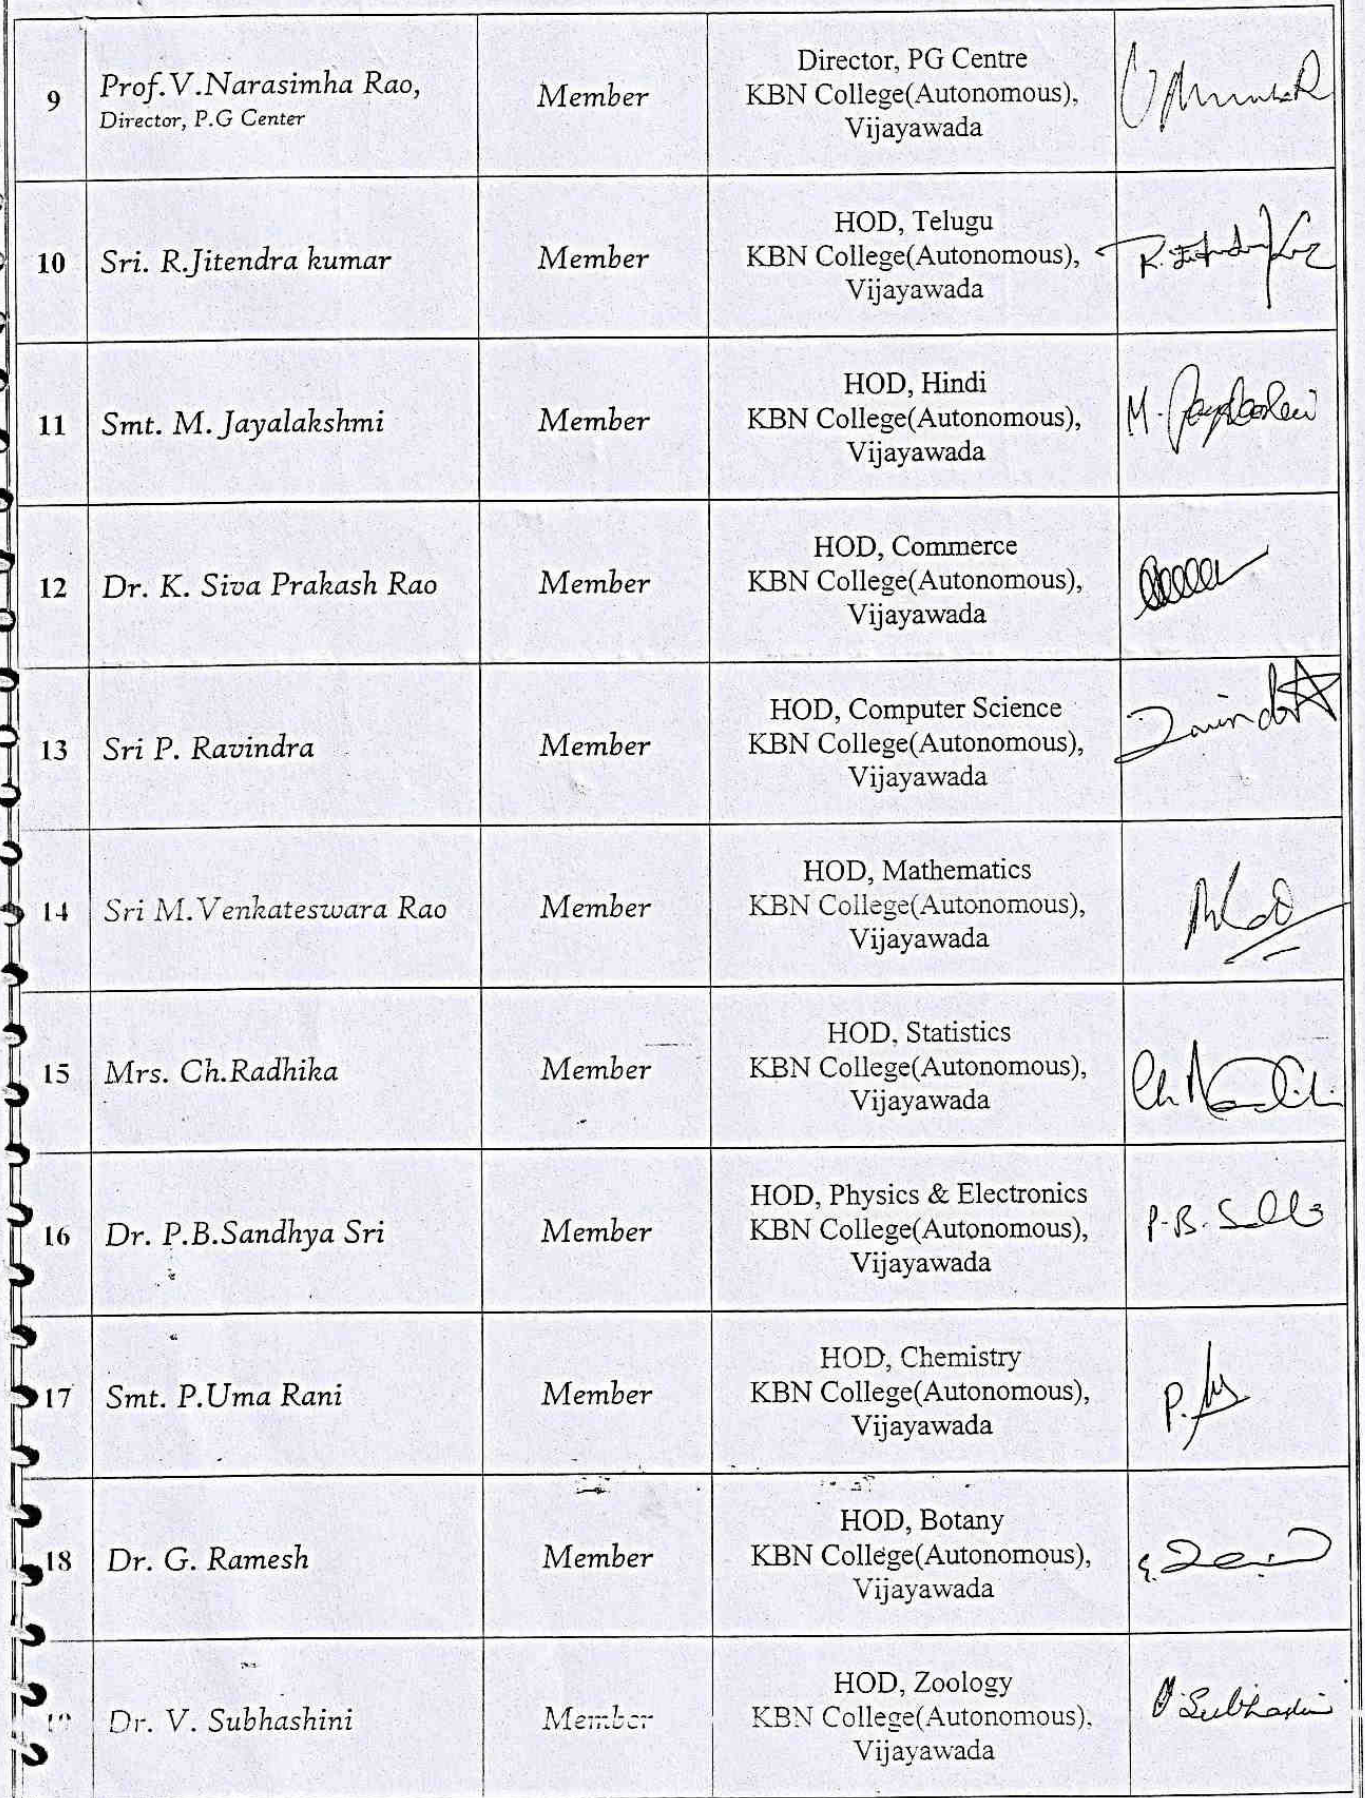 9
Prof.V.Narasimha Rao,
Director, P.G Center
Member
Director, PG Centre
KBN College(Autonomous),
Vijayawada
10
Sri. R.Jitendra kumar
Member
HOD, Telugu
KBN College(Autonomous),
Vijayawada
11
Smt. M. Jayalakshmi
Member
HOD, Hindi
KBN College(Autonomous),
Vijayawada
M.
12
Dr. K. Siva Prakash Rao
Member
HOD, Commerce
KBN College(Autonomous),
Vijayawada
13
Sri P. Ravindra
Member
HOD, Computer Science
KBN College(Autonomous),
Vijayawada
14
Sri M.Venkateswara Rao
Member
HOD, Mathematics
KBN College(Autonomous),
Vijayawada
15
Mrs. Ch.Radhika
Member
HOD, Statistics
KBN College(Autonomous),
Vijayawada
Ch
16
Dr. P.B.Sandhya Sri
Member
HOD, Physics & Electronics
KBN College(Autonomous),
Vijayawada
P.B.
17
Smt. P.Uma Rani
Member
HOD, Chemistry
KBN College(Autonomous),
Vijayawada
P.
18
Dr. G. Ramesh
Member
HOD, Botany
KBN College(Autonomous),
Vijayawada
19
Dr. V. Subhashini
Member
HOD, Zoology
KBN College(Autonomous),
Vijayawada
V. Subhashini